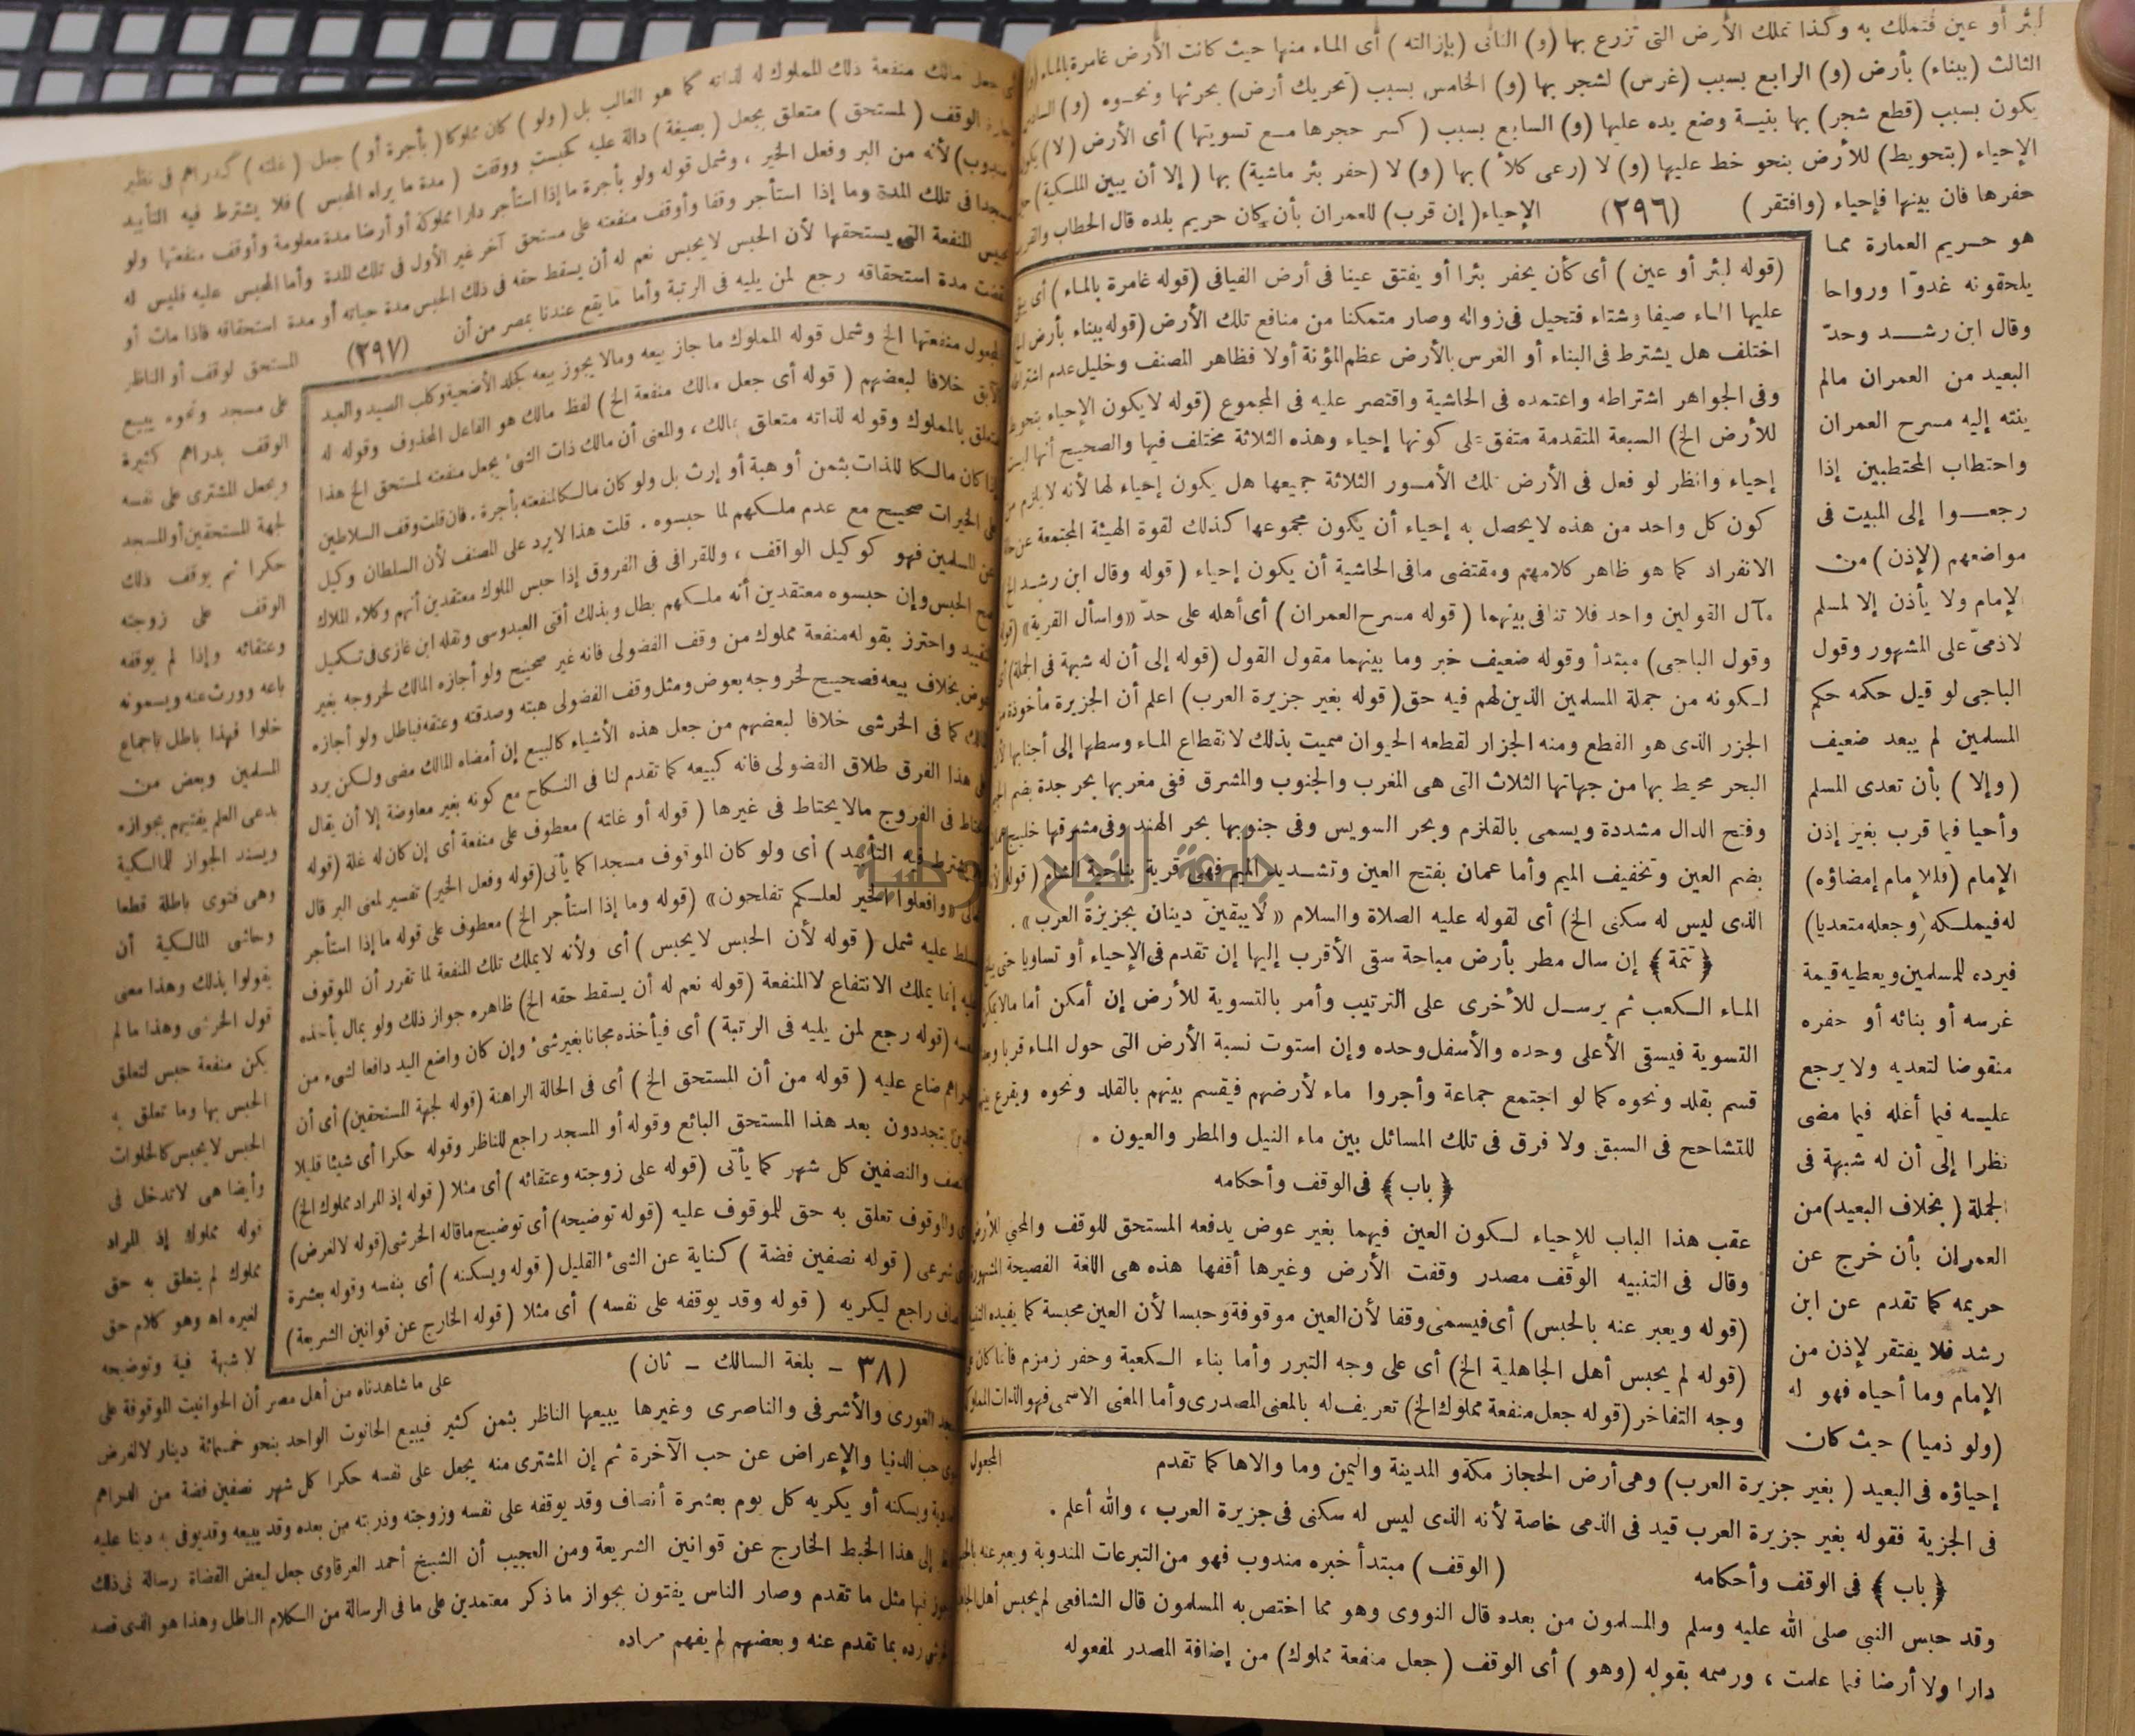 لبئر أو عين فتملك به وكذا تملك الأرض التى تزرع بها (و) الثانى (بإزالته) أى الماء منها حيث كانت الأرض غامرة بالماء (و)
الثالث (ببناء) بأرض (و) الرابع بسبب (غرس) لشجر بها (و) الخامس بسبب (تحريك أرض) بحرثها ونحوه (و) السادس
يكون بسبب (قطع شجر) بها بنية وضع يده عليها (و) السابع بسبب (كسر حجرها مع تسويتها) أى الأرض (لا) يكون
الإحياء (بتحويط) للأرض بنحو خط عليها (و) لا (رعى كلأ) بها (و) لا (حفر بئر ماشية) بها (إلا أن يبين الملكية) حين
حفرها فان بينها فإحياء (وافتقر) (٢٩٦) الإحياء (إن قرب) للعمران بأن كان حريم بلده قال الحطاب
هو حريم العمارة مما
يلحقونه غدوّا ورواحا
وقال ابن رشد وحدّ
البعيد من العمران مالم
ينته إليه مسرح العمران
واحتطاب المحتطبين إذا
رجعوا إلى المبيت فى
مواضعهم (لإذن) من
الإمام ولا يأذن إلا لمسلم
لاذمىّ على المشهور وقول
الباجى لو قيل حكمه حكم
المسلمين لم يبعد ضعيف
(وإلا) بأن تعدى المسلم
وأحيا فيما قرب بغير إذن
الإمام (فللإمام إمضاؤه)
له فيملكه (وجعله متعديا)
فيرده للمسلمين ويعطيه قيمة
غرسه أو بنائه أو حفره
منقوضا لتعديه ولا يرجع
عليه فيما أغله فيما مضى
نظرا إلى أن له شبهة فى
الجملة (بخلاف البعيد) من
العمران بأن خرج عن
حريمه كما تقدم عن ابن
رشد فلا يفتقر لإذن من
الإمام وما أحياه فهو له
(ولو ذميا) حيث كان
(قوله لبئر أو عين) أى كأن يحفر بئرا أو يفتق عينا فى أرض الفيافى (قوله غامرة بالماء) أى
عليها الماء صيفا وشتاء فتحيل فى زواله وصار متمكنا من منافع تلك الأرض (قوله ببناء بأرض الخ
اختلف هل يشترط فى البناء أو الغرس بالأرض عظم المؤنة أولا فظاهر المصنف وخليل عدم اشتراطه
وفى الجواهر اشتراطه واعتمده فى الحاشية واقتصر عليه فى المجموع (قوله لا يكون الإحياء بتحويط
للأرض الخ) السبعة المتقدمة متفق على كونها إحياء وهذه الثلاثة مختلف فيها والصحيح أنها ليست
إحياء وانظر لو فعل فى الأرض تلك الأمور الثلاثة جميعها هل يكون إحياء لها لأنه لا يلزم من
كون كل واحد من هذه لا يحصل به إحياء أن يكون مجموعها كذلك لقوة الهيئة المجتمعة عن حالة
الانفراد كما هو ظاهر كلامهم ومقتضى مافى الحاشية أن يكون إحياء (قوله وقال ابن رشد الخ
مآل القولين واحد فلا تنافى بينهما (قوله مسرح العمران) أى أهله على حدّ «واسأل القرية»
وقول الباجى) مبتدأ وقوله ضعيف خبر وما بينهما مقول القول (قوله إلى أن له شبهة فى الجملة) أى
لكونه من جملة المسلمين الذين لهم فيه حق (قوله بغير جزيرة العرب) اعلم أن الجزيرة مأخوذة من
الجزر الذى هو القطع ومنه الجزار لقطعه الحيوان سميت بذلك لانقطاع الماء وسطها إلى أجنابها
البحر محيط بها من جهاتها الثلاث التى هى المغرب والجنوب والمشرق ففى مغربها بحر جدة بضم الجيم
وفتح الدال مشددة ويسمى بالقلزم وبحر السويس وفى جنوبها بحر الهند وفى مشرقها خليج عمان
بضم العين وتخفيف الميم وأما عمان بفتح العين وتشديد الميم فهى قرية بناحية الشام (قوله لأنه
الذى ليس له سكنى الخ) أى لقوله عليه الصلاة والسلام «لا يبقينّ دينان بجزيرة العرب».
﴿تتمة﴾ إن سال مطر بأرض مباحة سقى الأقرب إليها إن تقدم فى الإحياء أو تساويا حتى يبلغ
الماء الكعب ثم يرسل للأخرى على الترتيب وأمر بالتسوية للأرض إن أمكن أما مالا يمكن
التسوية فيسقى الأعلى وحده والأسفل وحده وإن استوت نسبة الأرض التى حول الماء قربا وبعدا
قسم بقلد ونحوه كما لو اجتمع جماعة وأجروا ماء لأرضهم فيقسم بينهم بالقلد ونحوه ويقرع بينهم
للتشاحح فى السبق ولا فرق فى تلك المسائل بين ماء النيل والمطر والعيون .
﴿باب﴾ فى الوقف وأحكامه
عقب هذا الباب للإحياء لكون العين فيهما بغير عوض يدفعه المستحق للوقف والمحي للأرض
وقال فى التنبيه الوقف مصدر وقفت الأرض وغيرها أقفها هذه هى اللغة الفصيحة المشهورة
(قوله ويعبر عنه بالحبس) أى فيسمى وقفا لأن العين موقوفة وحبسا لأن العين محبسة كما يفيده
(قوله لم يحبس أهل الجاهلية الخ) أى على وجه التبرر وأما بناء الكعبة وحفر زمزم فانما كان على
وجه التفاخر (قوله جعل منفعة مملوك الخ) تعريف له بالمعنى المصدرى وأما المعنى الاسمى فهو الذات المملوكة
المجعول
إحياؤه فى البعيد (بغير جزيرة العرب) وهى أرض الحجاز مكة والمدينة واليمن وما والاها كما تقدم
فى الجزية فقوله بغير جزيرة العرب قيد فى الذمى خاصة لأنه الذى ليس له سكنى فى جزيرة العرب ، والله أعلم .
﴿باب﴾ فى الوقف وأحكامه (الوقف) مبتدأ خبره مندوب فهو من التبرعات المندوبة ويعبر عنه بالحبس
وقد حبس النبى صلى الله عليه وسلم والمسلمون من بعده قال النووى وهو مما اختص به المسلمون قال الشافعى لم يحبس أهل الجاهلية
دارا ولا أرضا فيما علمت ، ورسمه بقوله (وهو) أى الوقف (جعل منفعة مملوك) من إضافة المصدر لمفعوله
أى جعل مالك منفعة ذلك المملوك له لذاته كما هو الغالب بل (ولو) كان مملوكا (بأجرة أو) جعل (غلته) كدراهم فى نظير
إجارة الوقف (لمستحق) متعلق بجعل (بصيغة) دالة عليه كحبست ووقفت (مدة ما يراه المحبس) فلا يشترط فيه التأبيد
(مندوب) لأنه من البر وفعل الخير ، وشمل قوله ولو بأجرة ما إذا استأجر دارا مملوكة أو أرضا مدة معلومة وأوقف منفعتها ولو
مسجدا فى تلك المدة وما إذا استأجر وقفا وأوقف منفعته على مستحق آخر غير الأول فى تلك المدة وأما المحبس عليه فليس له
تحبيس المنفعة التى يستحقها لأن الحبس لا يحبس نعم له أن يسقط حقه فى ذلك الحبس مدة حياته أو مدة استحقاقه فاذا مات أو
انقضت مدة استحقاقه رجع لمن يليه فى الرتبة وأما ما يقع عندنا بمصر من أن (٢٩٧) المستحق لوقف أو الناظر
على مسجد ونحوه يبيع
الوقف بدراهم كثيرة
ويجعل المشترى على نفسه
لجهة المستحقين أو المسجد
حكرا ثم يوقف ذلك
الوقف على زوجته
وعتقائه وإذا لم يوقفه
باعه وورث عنه ويسمونه
خلوا فهذا باطل باجماع
المسلمين وبعض من
يدعى العلم يفتيهم بجوازه
ويسند الجواز للمالكية
وهى فتوى باطلة قطعا
وحاشى المالكية أن
يقولوا بذلك وهذا معنى
قول الخرشى وهذا ما لم
يكن منفعة حبس لتعلق
الحبس بها وما تعلق به
الحبس لا يحبس كالخلوات
وأيضا هى لا تدخل فى
قوله مملوك إذ المراد
مملوك لم يتعلق به حق
لغيره اه وهو كلام حق
لا شبهة فيه وتوضيحه
المجعول منفعتها الخ وشمل قوله المملوك ما جاز بيعه ومالا يجوز بيعه كجلد الأضحية وكلب الصيد والعبد
الآبق خلافا لبعضهم (قوله أى جعل مالك منفعة الخ) لفظ مالك هو الفاعل المحذوف وقوله له
متعلق بالمملوك وقوله لذاته متعلق بمالك ، والمعنى أن مالك ذات الشىء يجعل منفعته لمستحق الخ هذا
إذا كان مالكا للذات بثمن أو هبة أو إرث بل ولو كان مالكا لمنفعته بأجرة . فان قلت وقف السلاطين
على الخيرات صحيح مع عدم ملكهم لما حبسوه . قلت هذا لا يرد على المصنف لأن السلطان وكيل
عن المسلمين فهو كوكيل الواقف ، وللقرافى فى الفروق إذا حبس الملوك معتقدين أنهم وكلاء الملاك
صح الحبس وإن حبسوه معتقدين أنه ملكهم بطل وبذلك أفتى العبدوسى ونقله ابن غازى فى تكميل
التقييد واحترز بقوله منفعة مملوك من وقف الفضولى فانه غير صحيح ولو أجازه المالك لخروجه بغير
عوض بخلاف بيعه فصحيح لخروجه بعوض ومثل وقف الفضولى هبته وصدقته وعتقه فباطل ولو أجازه
المالك كما فى الخرشى خلافا لبعضهم من جعل هذه الأشياء كالبيع إن أمضاه المالك مضى ولكن يرد
على هذا الفرق طلاق الفضولى فانه كبيعه كما تقدم لنا فى النكاح مع كونه بغير معاوضة إلا أن يقال
يحتاط فى الفروج مالا يحتاط فى غيرها (قوله أو غلته) معطوف على منفعة أى إن كان له غلة (قوله
فلا يشترط فيه التأبيد) أى ولو كان الموقوف مسجدا كما يأتى (قوله وفعل الخير) تفسير لمعنى البر قال
تعالى «وافعلوا الخير لعلكم تفلحون» (قوله وما إذا استأجر الخ) معطوف على قوله ما إذا استأجر
مسلط عليه شمل (قوله لأن الحبس لا يحبس) أى ولأنه لا يملك تلك المنفعة لما تقرر أن الموقوف
عليه إنما يملك الانتفاع لا المنفعة (قوله نعم له أن يسقط حقه الخ) ظاهره جواز ذلك ولو بمال يأخذه
لنفسه (قوله رجع لمن يليه فى الرتبة) أى فيأخذه مجانا بغير شىء وإن كان واضع اليد دافعا لشىء من
الدراهم ضاع عليه (قوله من أن المستحق الخ) أى فى الحالة الراهنة (قوله لجهة المستحقين) أى أن
الذين يتجددون بعد هذا المستحق البائع وقوله أو المسجد راجع للناظر وقوله حكرا أى شيئا قليلا
كالنصف والنصفين كل شهر كما يأتى (قوله على زوجته وعتقائه) أى مثلا (قوله إذ المراد مملوك الخ)
أى والموقوف تعلق به حق للموقوف عليه (قوله توضيحه) أى توضيح ماقاله الخرشى (قوله لا لغرض)
أى شرعى (قوله نصفين فضة) كناية عن الشىء القليل (قوله ويسكنه) أى بنفسه وقوله بعشرة
أنصاف راجع ليكريه (قوله وقد يوقفه على نفسه) أى مثلا (قوله الخارج عن قوانين الشريعة)
(٣٨ - بلغة السالك - ثان)
على ما شاهدناه من أهل مصر أن الحوانيت الموقوفة على
مسجد الغورى والأشرفى والناصرى وغيرها يبيعها الناظر بثمن كثير فيبيع الحانوت الواحد بنحو خمسمائة دينار لا لغرض
سوى حب الدنيا والإعراض عن حب الآخرة ثم إن المشترى منه يجعل على نفسه حكرا كل شهر نصفين فضة من الدراهم
ويسكنه أو يكريه كل يوم بعشرة أنصاف وقد يوقفه على نفسه وزوجته وذريته من بعده وقد يبيعه وقد يوفى به دينا عليه
إلى هذا الخبط الخارج عن قوانين الشريعة ومن العجيب أن الشيخ أحمد الغرقاوى جعل لبعض القضاة رسالة فى ذلك
جوز فيها مثل ما تقدم وصار الناس يفتون بجواز ما ذكر معتمدين على ما فى الرسالة من الكلام الباطل وهذا هو الذى قصد
الخرشى رده بما تقدم عنه وبعضهم لم يفهم مراده